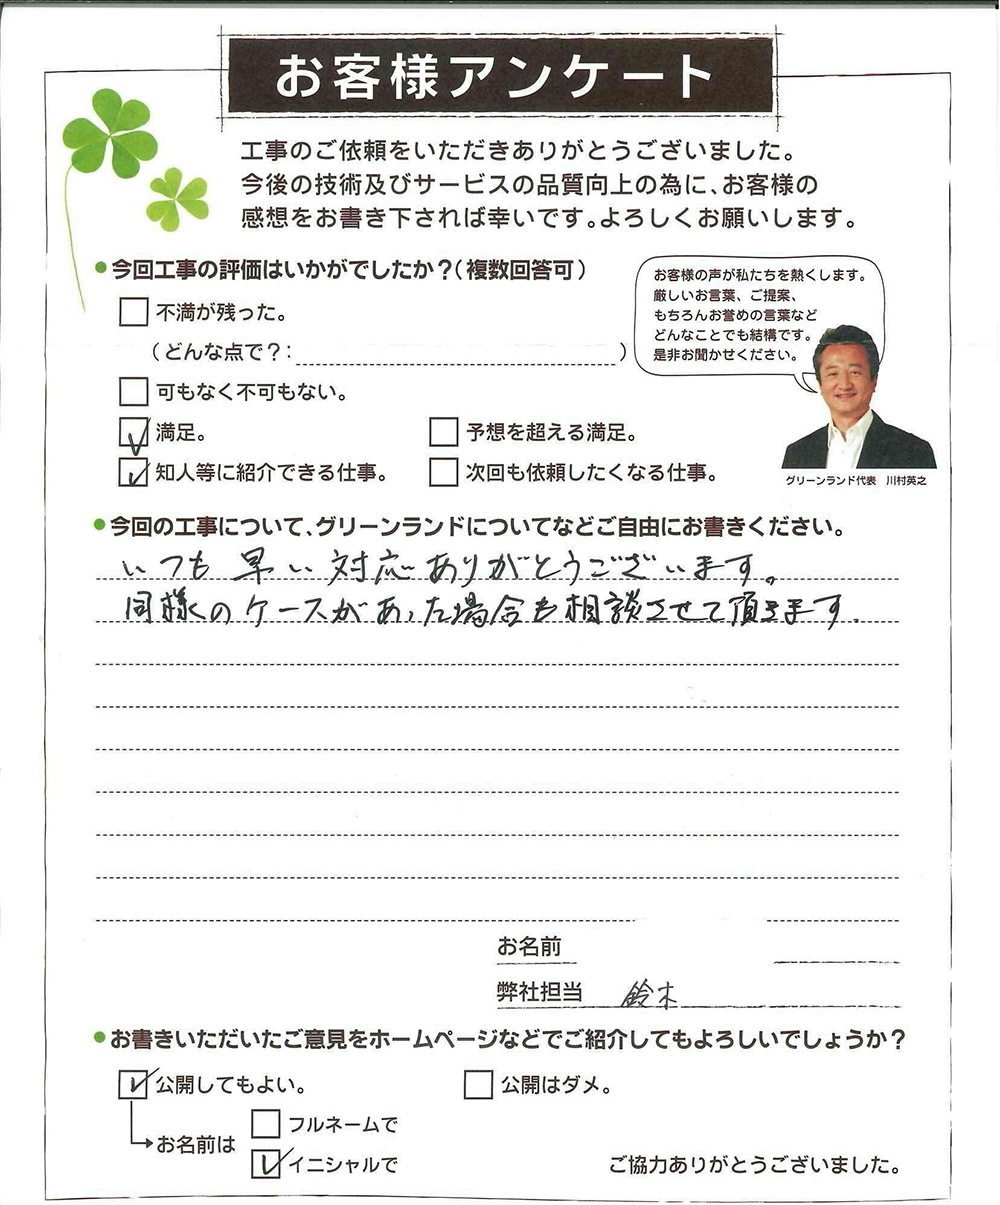 お客様アンケート
工事のご依頼をいただきありがとうございました。
今後の技術及びサービスの品質向上の為に、お客様の
感想をお書き下されば幸いです。よろしくお願いします。
今回工事の評価はいかがでしたか？（複数回答可）
不満が残った。
（どんな点で？：　）
可もなく不可もない。
満足。
予想を超える満足。
知人等に紹介できる仕事。
次回も依頼したくなる仕事。
お客様の声が私たちを熱くします。
厳しいお言葉、ご提案、
もちろんお誉めの言葉など
どんなことでも結構です。
是非お聞かせください。
グリーンランド代表　川村英之
今回の工事について、グリーンランドについてなどご自由にお書きください。
いつも早い対応ありがとうございます。
同様のケースがあった場合も相談させて頂きます。
お名前
弊社担当　鈴木
お書きいただいたご意見をホームページなどでご紹介してもよろしいでしょうか？
公開してもよい。
公開はダメ。
お名前は
フルネームで
イニシャルで
ご協力ありがとうございました。